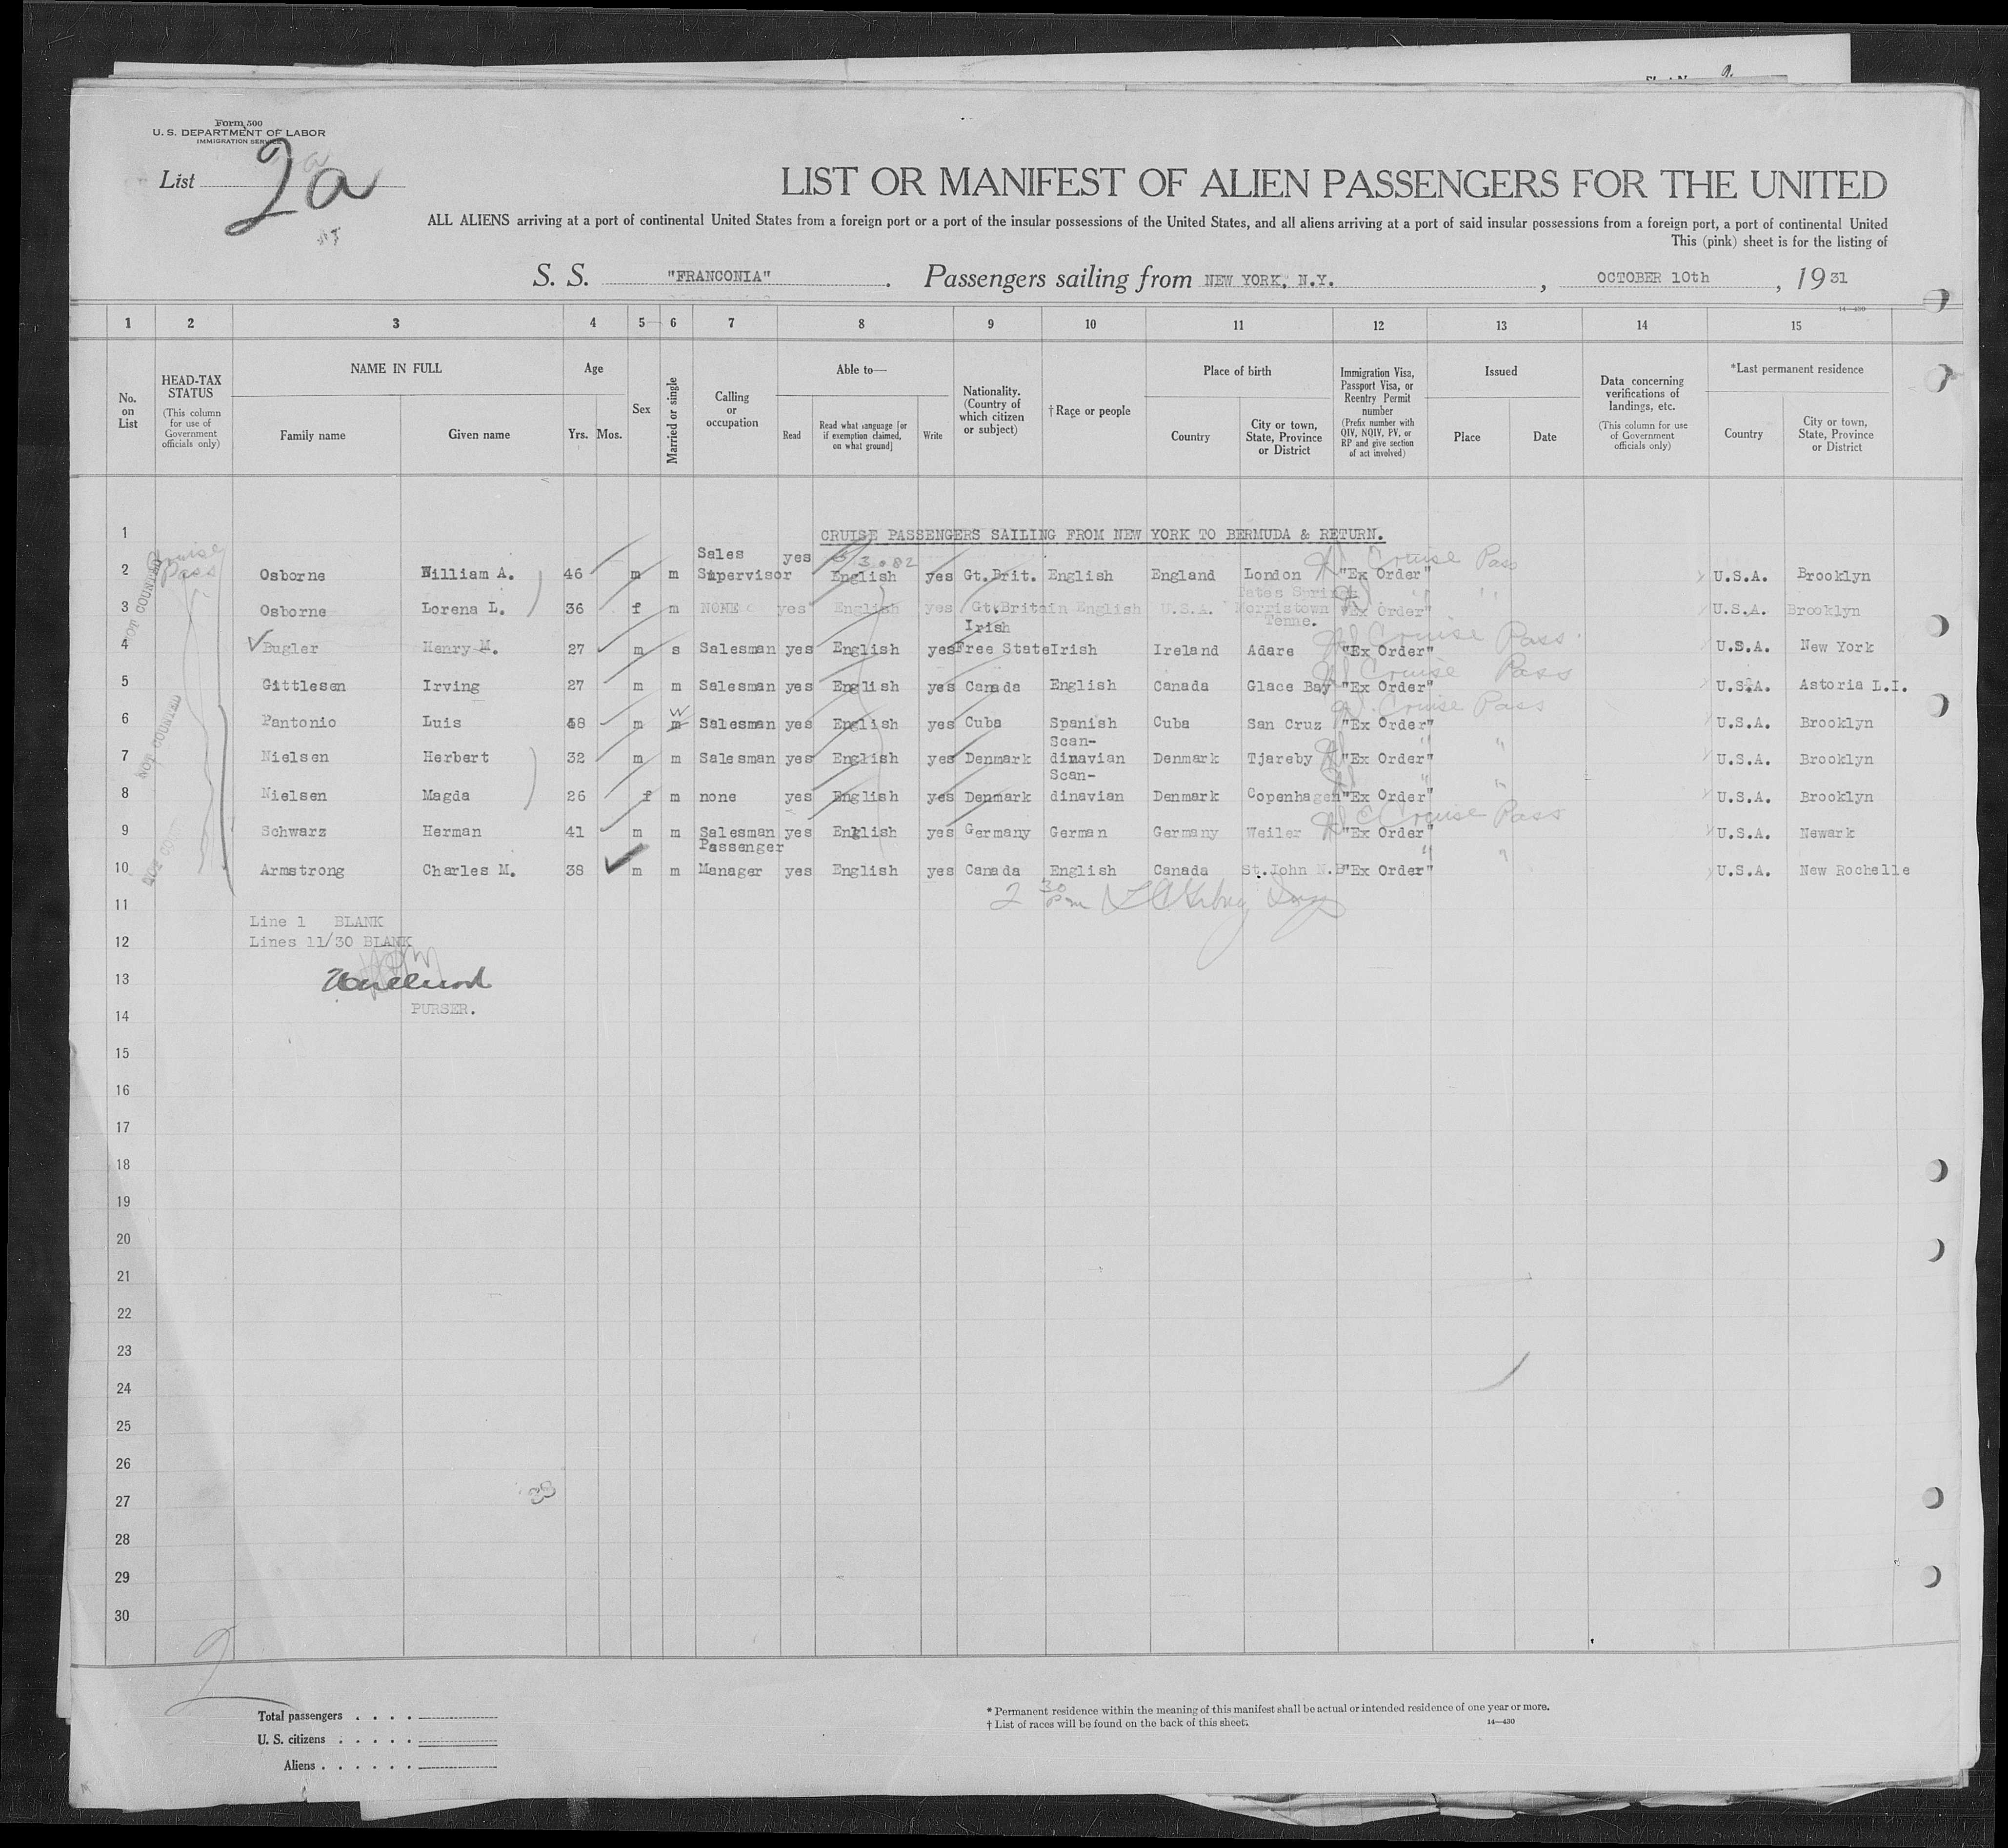 Form 500
U. S. DEPARTMENT OF LABOR
IMMIGRATION SERVICE
List 2a
LIST OR MANIFEST OF ALIEN PASSENGERS FOR THE UNITED
ALL ALIENS arriving at a port of continental United States from a foreign port or a port of the insular possessions of the United States, and all aliens arriving at a port of said insular possessions from a foreign port, a port of continental United
This (pink) sheet is for the listing of
S. S. "FRANCONIA". Passengers sailing from NEW YORK, N.Y., OCTOBER 10th, 1931
14—430
1 2 3 4 5 6 7 8 9 10 11 12 13 14 15
No. on List
HEAD-TAX STATUS
(This column for use of Government officials only)
NAME IN FULL
Family name Given name
Age
Yrs. Mos.
Sex
Married or single
Calling or occupation
Able to—
Read
Read what language [or if exemption claimed, on what ground]
Write
Nationality. (Country of which citizen or subject)
†Race or people
Place of birth
Country
City or town, State, Province or District
Immigration Visa, Passport Visa, or Reentry Permit number
(Prefix number with QIV, NQIV, PV, or RP and give section of act involved)
Issued
Place Date
Data concerning verifications of landings, etc.
(This column for use of Government officials only)
*Last permanent residence
Country
City or town, State, Province or District
1 CRUISE PASSENGERS SAILING FROM NEW YORK TO BERMUDA & RETURN.
Cruise Pass
NOT COUNTED
NOT COUNTED
2 Osborne William A. 46 m m Sales Supervisor yes English yes Gt.Brit. English England London "Ex Order" Cruise Pass U.S.A. Brooklyn
3 Osborne Lorena L. 36 f m NONE yes English yes Gt.Britain English U.S.A. Tates Springs Morristown Tenne. "Ex Order" " " U.S.A. Brooklyn
4 Bugler Henry M. 27 m s Salesman yes English yes Irish Free State Irish Ireland Adare "Ex Order" Cruise Pass U.S.A. New York
5 Gittlesen Irving 27 m m Salesman yes English yes Canada English Canada Glace Bay "Ex Order" Cruise Pass U.S.A. Astoria L.I.
6 Pantonio Luis 48 m m w Salesman yes English yes Cuba Spanish Cuba San Cruz "Ex Order" Cruise Pass U.S.A. Brooklyn
7 Nielsen Herbert 32 m m Salesman yes English yes Denmark Scan-dinavian Denmark Tjareby "Ex Order" " " U.S.A. Brooklyn
8 Nielsen Magda 26 f m none yes English yes Denmark Scan-dinavian Denmark Copenhagen "Ex Order" " " U.S.A. Brooklyn
9 Schwarz Herman 41 m m Salesman yes English yes Germany German Germany Weiler "Ex Order" Cruise Pass U.S.A. Newark
10 Armstrong Charles M. 38 m m Passenger Manager yes English yes Canada English Canada St.John N.B "Ex Order" " " U.S.A. New Rochelle
11 Line 1 BLANK
12 Lines 11/30 BLANK
13
14 PURSER.
15
16
17
18
19
20
21
22
23
24
25
26
27
28
29
30
Total passengers . . . .
U. S. citizens . . . . .
Aliens . . . . . .
* Permanent residence within the meaning of this manifest shall be actual or intended residence of one year or more.
† List of races will be found on the back of this sheet.
14—430